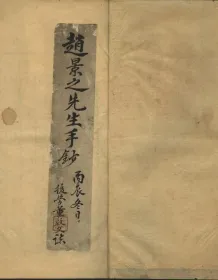 趙景之先生手鈔
丙辰冬日